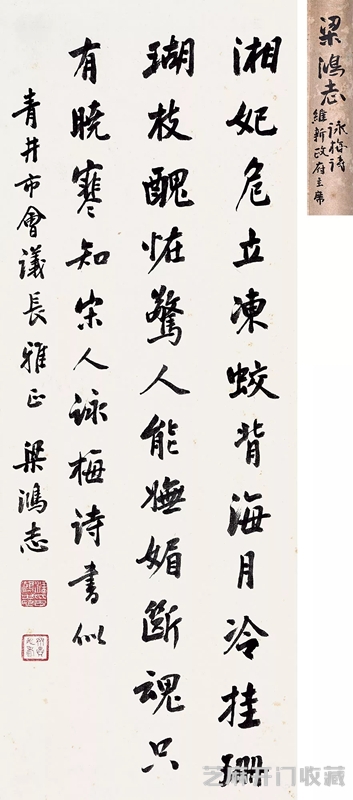 湘妃危立凍蛟背海月冷挂珊
瑚枝醜怪驚人能嫵媚斷魂只
有曉寒知宋人詠梅詩書似
青井市會議長雅正 梁鴻志
梁鴻志
詠梅詩
維新政府主席
芝麻开门收藏